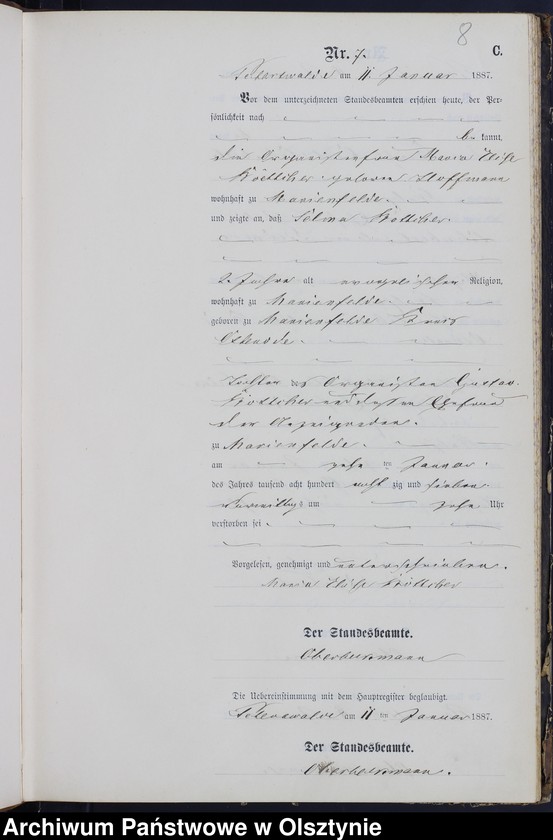 8
Nr. 7. C.
Peterswalde am 11 Januar 1887.
Vor dem unterzeichneten Standesbeamten erschien heute, der Per-
sönlichkeit nach
be kannt,
die Organistenfrau Maria Elise
Böttcher geborene Hoffmann
wohnhaft zu Marienfelde.
und zeigte an, daß Selma Böttcher
2 Jahre alt evangelischer Religion,
wohnhaft zu Marienfelde.
geboren zu Marienfelde Kreis
Osterode.
Tochter des Organisten Gustav
Böttcher und dessen Ehefrau
der Anzeigenden.
zu Marienfelde.
am zehn ten Januar
des Jahres tausend acht hundert acht zig und sieben
Vormittags um zehn Uhr
verstorben sei
Vorgelesen, genehmigt und unterschrieben.
Maria Elise Böttcher
Der Standesbeamte.
Die Uebereinstimmung mit dem Hauptregister beglaubigt.
Peterswalde am 11 ten Januar 1887.
Der Standesbeamte.
Archiwum Państwowe w Olsztynie